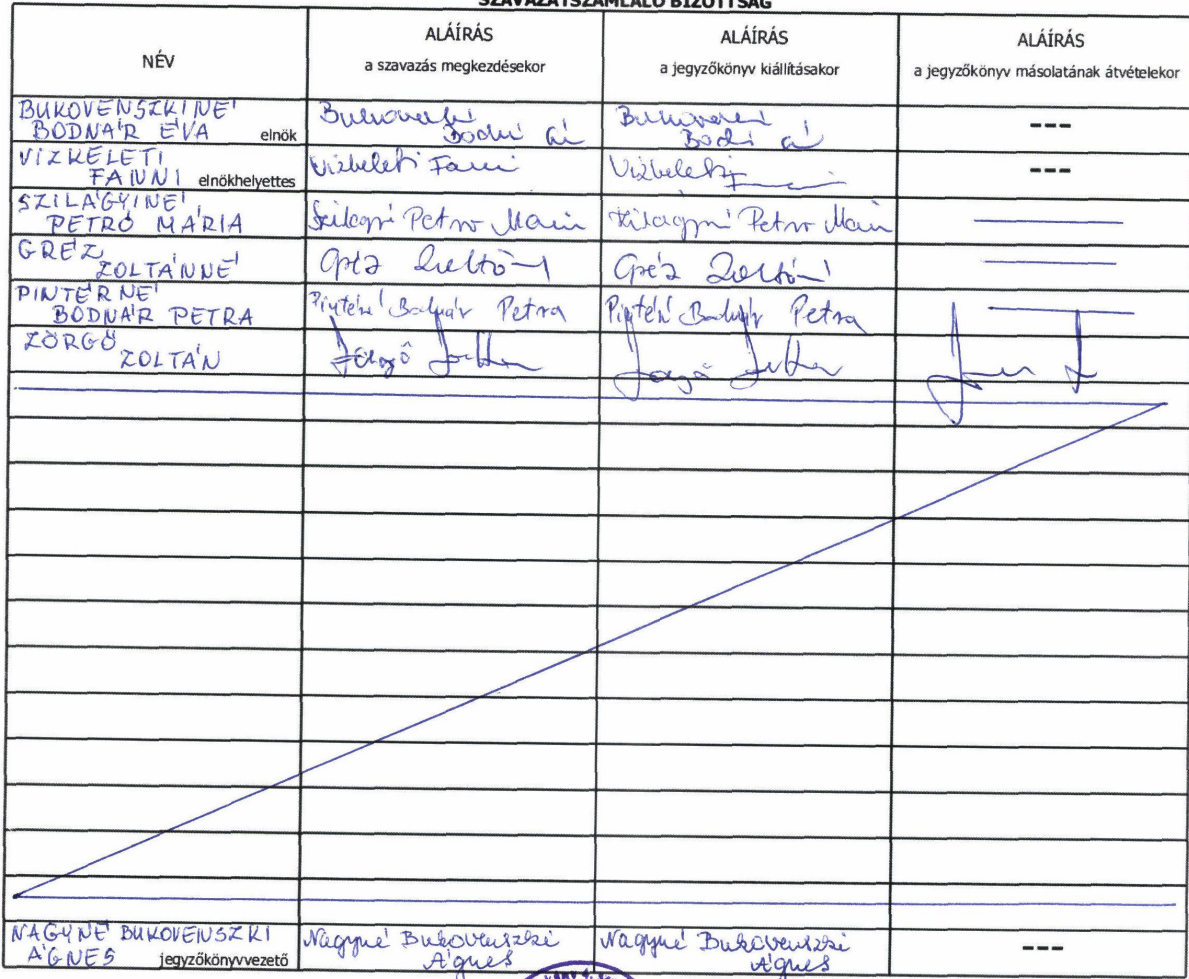 SZAVAZATSZÁMLÁLÓ BIZOTTSÁG
NÉV
ALÁÍRÁS
a szavazás megkezdésekor
ALÁÍRÁS
a jegyzőkönyv kiállításakor
ALÁÍRÁS
a jegyzőkönyv másolatának átvételekor
BUKOVENSZKINÉ
BODNÁR ÉVA elnök
---
VIZKELETI
FANNI elnökhelyettes
Vizkeleti Fanni
Vizkeleti
---
SZILÁGYINÉ
PETRÓ MÁRIA
Szilágyiné Petró Mária
Szilágyiné Petró Mária
GRÉZ
ZOLTÁNNÉ
Gréz Zoltánné
Gréz Zoltánné
PINTÉRNÉ
BODNÁR PETRA
Pintérné Bodnár Petra
Pintérné Bodnár Petra
ZÖRGŐ
ZOLTÁN
NAGYNÉ BUKOVENSZKI
ÁGNES jegyzőkönyvvezető
Nagyné Bukovenszki
Ágnes
Nagyné Bukovenszki
Ágnes
---